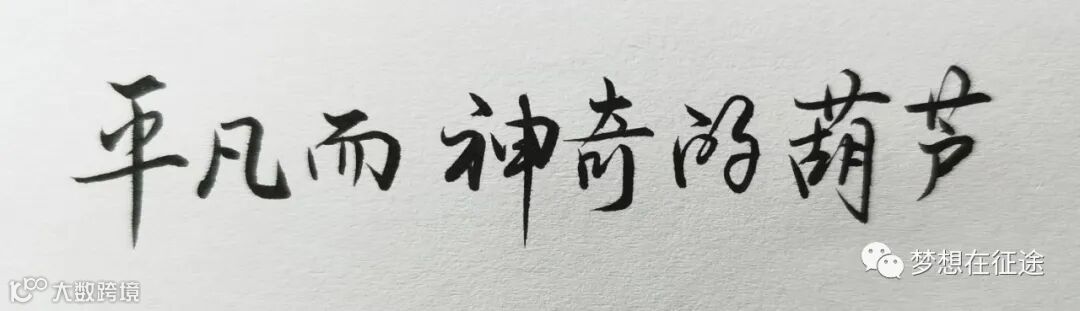 平凡而神奇的葫芦
梦想在征途
大数跨境